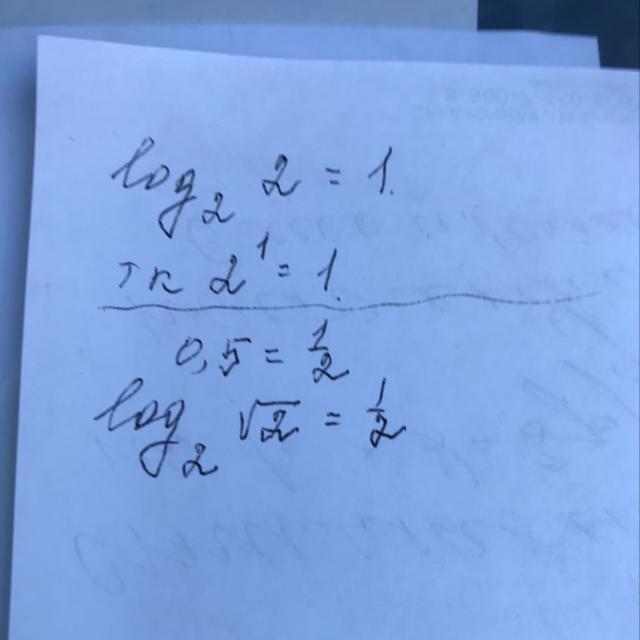 log₂ 2 = 1.
тк 2¹ = 1.
0,5 = 1/2
log₂ √2 = 1/2